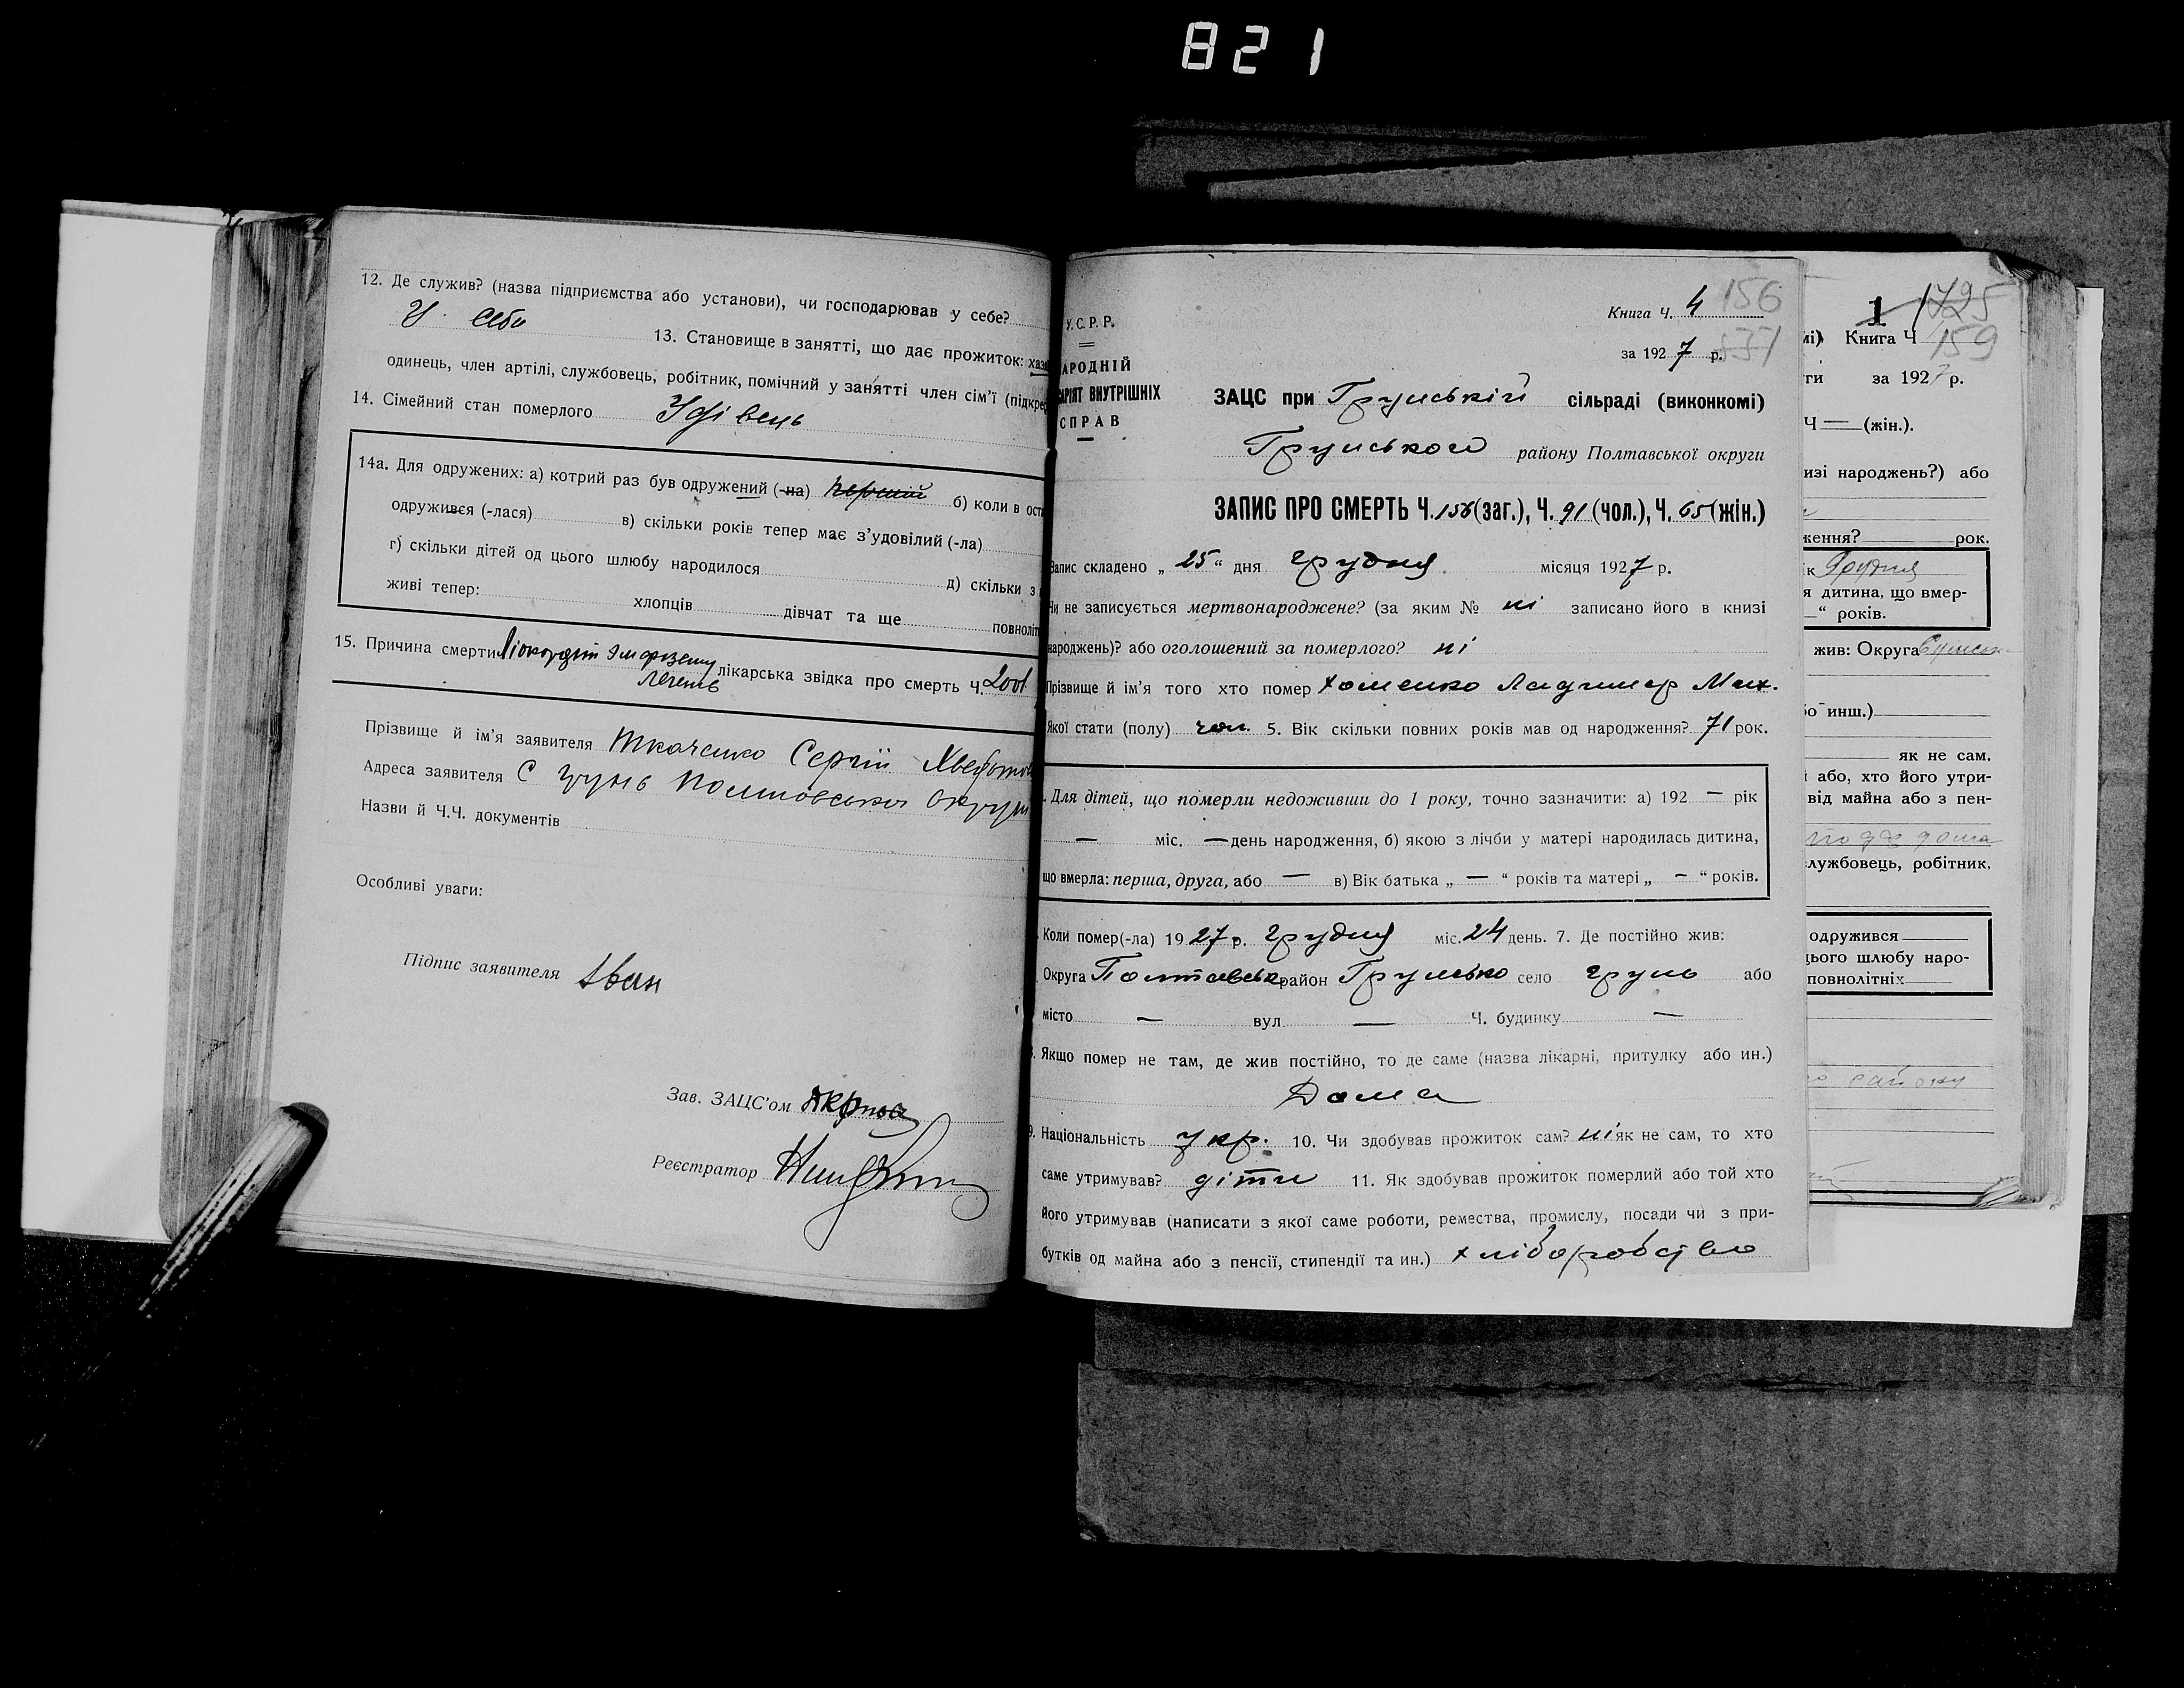 821
12. Де служив? (назва підприємства або установи), чи господарював у себе?
У себе 13. Становище в занятті, що дає прожиток: хаз
одинець, член артілі, службовець, робітник, помічний у занятті член сім’ї (підкре
14. Сімейний стан померлого Удівець
14а. Для одружених: а) котрий раз був одружений (-на) первий б) коли в ост
одружився (-лася) в) скільки років тепер має з’удовілий (-ла)
г) скільки дітей од цього шлюбу народилося д) скільки з
живі тепер: хлопців дівчат та ще повноліт
15. Причина смерти Міокардит Эмфізему легень лікарська звідка про смерть Ч.
Прізвище й ім’я заявителя Ткаченко Сергій
Адреса заявителя С Грунь Полтавської Округи
Назви й Ч.Ч. документів
Особливі уваги:
Підпис заявителя
Зав. ЗАЦС’ом
Реєстратор
У.С.Р.Р.
АРОДНІЙ
АРІЯТ ВНУТРІШНІХ
СПРАВ
Книга Ч. 4 156
за 1927 р. 537
ЗАЦС при Грунській сільраді (виконкомі)
Грунського району Полтавської округи
ЗАПИС ПРО СМЕРТЬ Ч. 156 (заг.), Ч. 91 (чол.), Ч. 65 (жін.)
Запис складено „ 25 “ дня грудня місяця 1927 р.
Чи не записується мертвонароджене? (за яким № ні записано його в книзі
народжень)? або оголошений за померлого? ні
Прізвище й ім’я того хто помер Хоменко Ладимер Мих.
Якої стати (полу) чол. 5. Вік скільки повних років мав од народження? 71 рок.
. Для дітей, що померли недоживши до 1 року, точно зазначити: а) 192 — рік
— міс. — день народження, б) якою з лічби у матері народилась дитина,
що вмерла: перша, друга, або — в) Вік батька „ — “ років та матері „ — “ років.
Коли помер(-ла) 1927 р. грудня міс. 24 день. 7. Де постійно жив:
Округа Полтавськ район Грунсько село грунь або
місто — вул — Ч. будинку —
. Якщо помер не там, де жив постійно, то де саме (назва лікарні, притулку або ин.)
Дома
9. Національність укр. 10. Чи здобував прожиток сам? ні як не сам, то хто
саме утримував? діти 11. Як здобував прожиток померлий або той хто
його утримував (написати з якої саме роботи, ремества, промислу, посади чи з при-
бутків од майна або з пенсії, стипендії та ин.) хліборобство
1 1725
мі) Книга Ч 159
ги за 1927 р.
Ч — (жін.).
изі народжень?) або
ження? рок.
ік Грудня
я дитина, що вмер-
— “ років.
жив: Округа
бо инш.)
як не сам,
або, хто його утри-
від майна або з пен-
службовець, робітник.
одружився
цього шлюбу наро-
повнолітніх
району